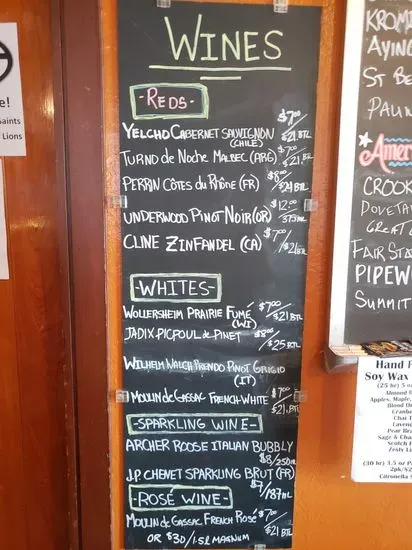 WINES
-REDS-
YELCHO CABERNET SAUVIGNON (CHILE) $7.00/$21 BTL
TURNO de NOCHE MALBEC (ARG) $7.00/$21 BTL
PERRIN CÔTES du RHÔNE (FR) $8.00/$24 BTL
UNDERWOOD PINOT NOIR (OR) $12.00 375ml
CLINE ZINFANDEL (CA) $7.00/$21 BTL
-WHITES-
WOLLERSHEIM PRAIRIE FUMÉ (WI) $7.00/$21 BTL
JADIX PICPOUL de PINET $8.00/$25 BTL
PINOT GRIGIO (IT)
MOULIN de GASSAC FRENCH WHITE $7.00/$21 BTL
-SPARKLING WINE-
ARCHER ROOSE ITALIAN BUBBLY $8/250ml
J.P. CHENET SPARKLING BRUT (FR) $7/187ml
-ROSÉ WINE-
MOULIN de GASSAC FRENCH ROSÉ $7.00/$21 BTL
OR $30/1.5L MAGNUM
e!
Saints
Lions
KROM
AYING
ST BE
PAUL
Amer
CROOK
DOVETA
GREAT
FAIR STA
PIPEW
SUMMIT
Hand P
Soy Wax
(25 hr) 5 o
Almond
Apples, Maple,
Blood O
Cranbe
Chai T
Lavend
Pear Bra
Sage &
Scotch F
Zesty L
(30 hr) 3.5 oz P
2pk/$2
Citronella